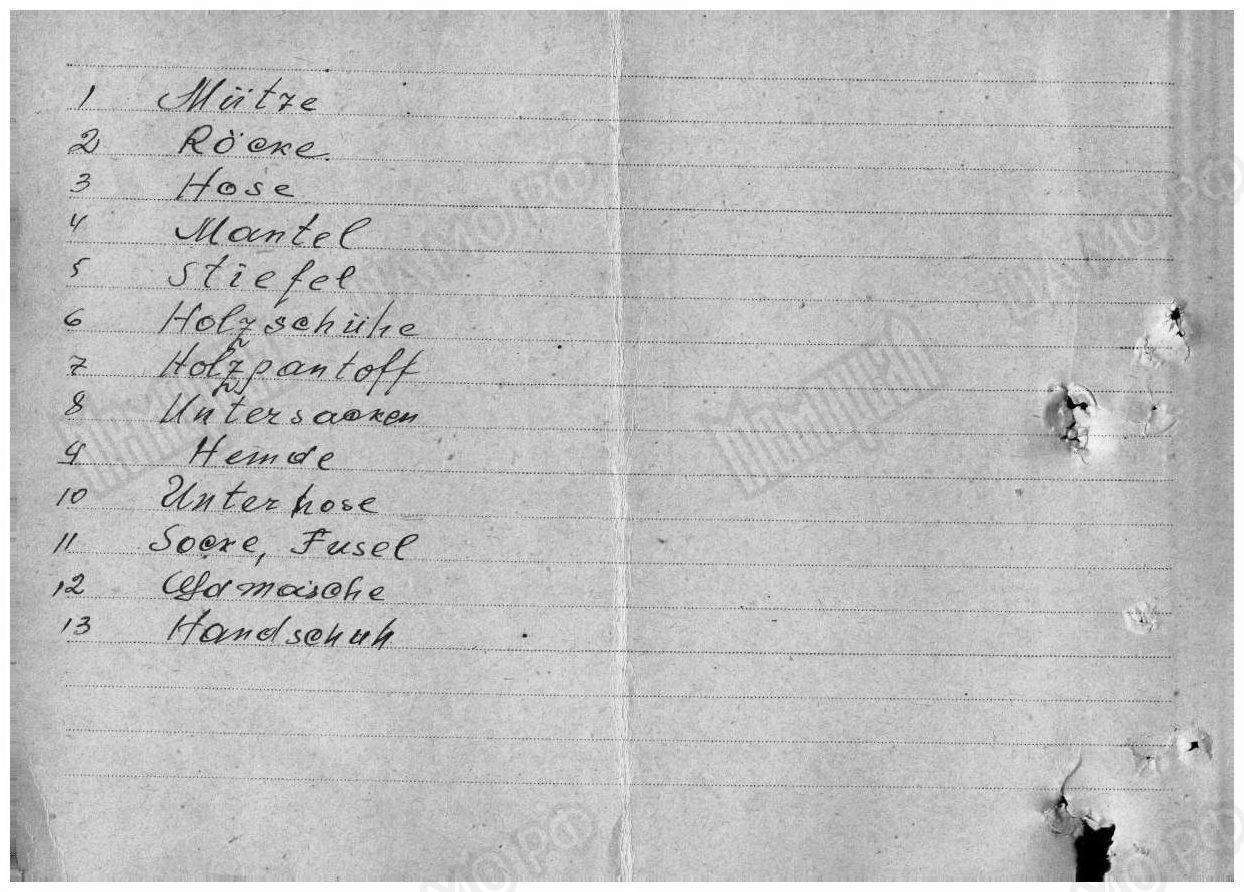 1 Mütze
2 Röcke.
3 Hose
4 Mantel
5 Stiefel
6 Holzschühe
7 Holzpantoff
8 Untersacken
9 Hemde
10 Unterhose
11 Socke, Fusel
12 Gamasche
13 Handschuh